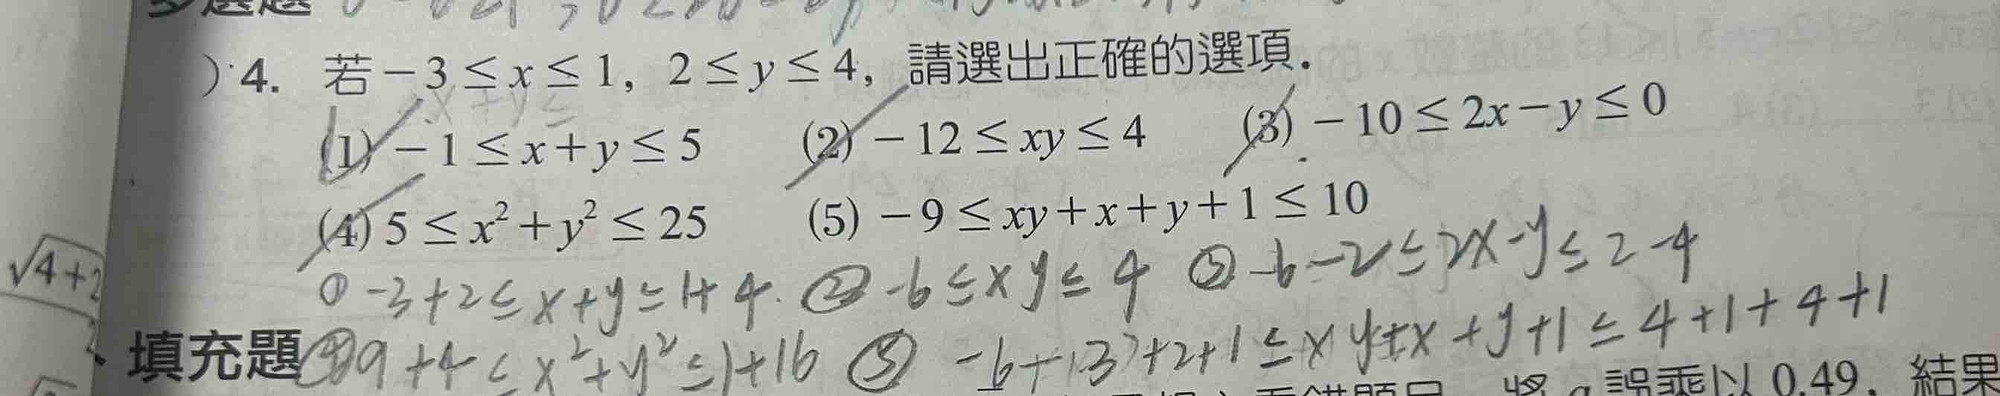 ) 4. 若 −3 ≤ x ≤ 1, 2 ≤ y ≤ 4, 請選出正確的選項.
(1) −1 ≤ x+y ≤ 5 (2) −12 ≤ xy ≤ 4 (3) −10 ≤ 2x−y ≤ 0
(4) 5 ≤ x²+y² ≤ 25 (5) −9 ≤ xy+x+y+1 ≤ 10
① -3+2 ≤ x+y ≤ 1+4. ② -6 ≤ xy ≤ 4 ③ -6-2 ≤ 2x-y ≤ 2-4
填充題 ④ 9+4 ≤ x²+y² ≤ 1+16 ⑤ -6+(-3)+2+1 ≤ xy+x+y+1 ≤ 4+1+4+1
誤乘以 0.49, 結果